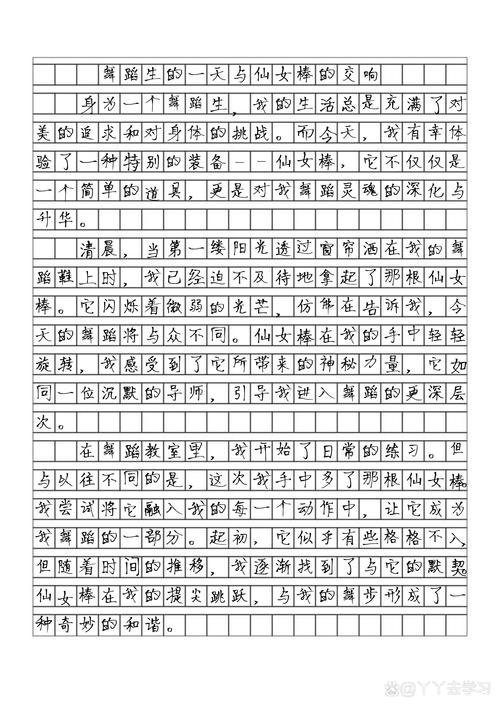 舞蹈生的一天与仙女棒的交响
身为一个舞蹈生，我的生活总是充满了对
美的追求和对身体的挑战。而今天，我有幸体
验了一种特别的装备--仙女棒，它不仅仅是
一个简单的道具，更是对我舞蹈灵魂的深化与
升华。
清晨，当第一缕阳光透过窗帘洒在我的舞
蹈鞋上时，我已经迫不及待地拿起了那根仙女
棒。它闪烁着微弱的光芒，仿佛在告诉我，今
天的舞蹈将与众不同。仙女棒在我的手中轻轻
旋转，我感受到了它所带来的神秘力量，它如
同一位沉默的导师，引导我进入舞蹈的更深层
次。
在舞蹈教室里，我开始了日常的练习。但
与以往不同的是，这次我手中多了那根仙女棒。
我尝试将它融入我的每一个动作中，让它成为
我舞蹈的一部分。起初，它似乎有些格格不入，
但随着时间的推移，我逐渐找到了与它的默契。
仙女棒在我的提尖跳跃，与我的舞步形成了一
种奇妙的和谐。
@丫丫去学习